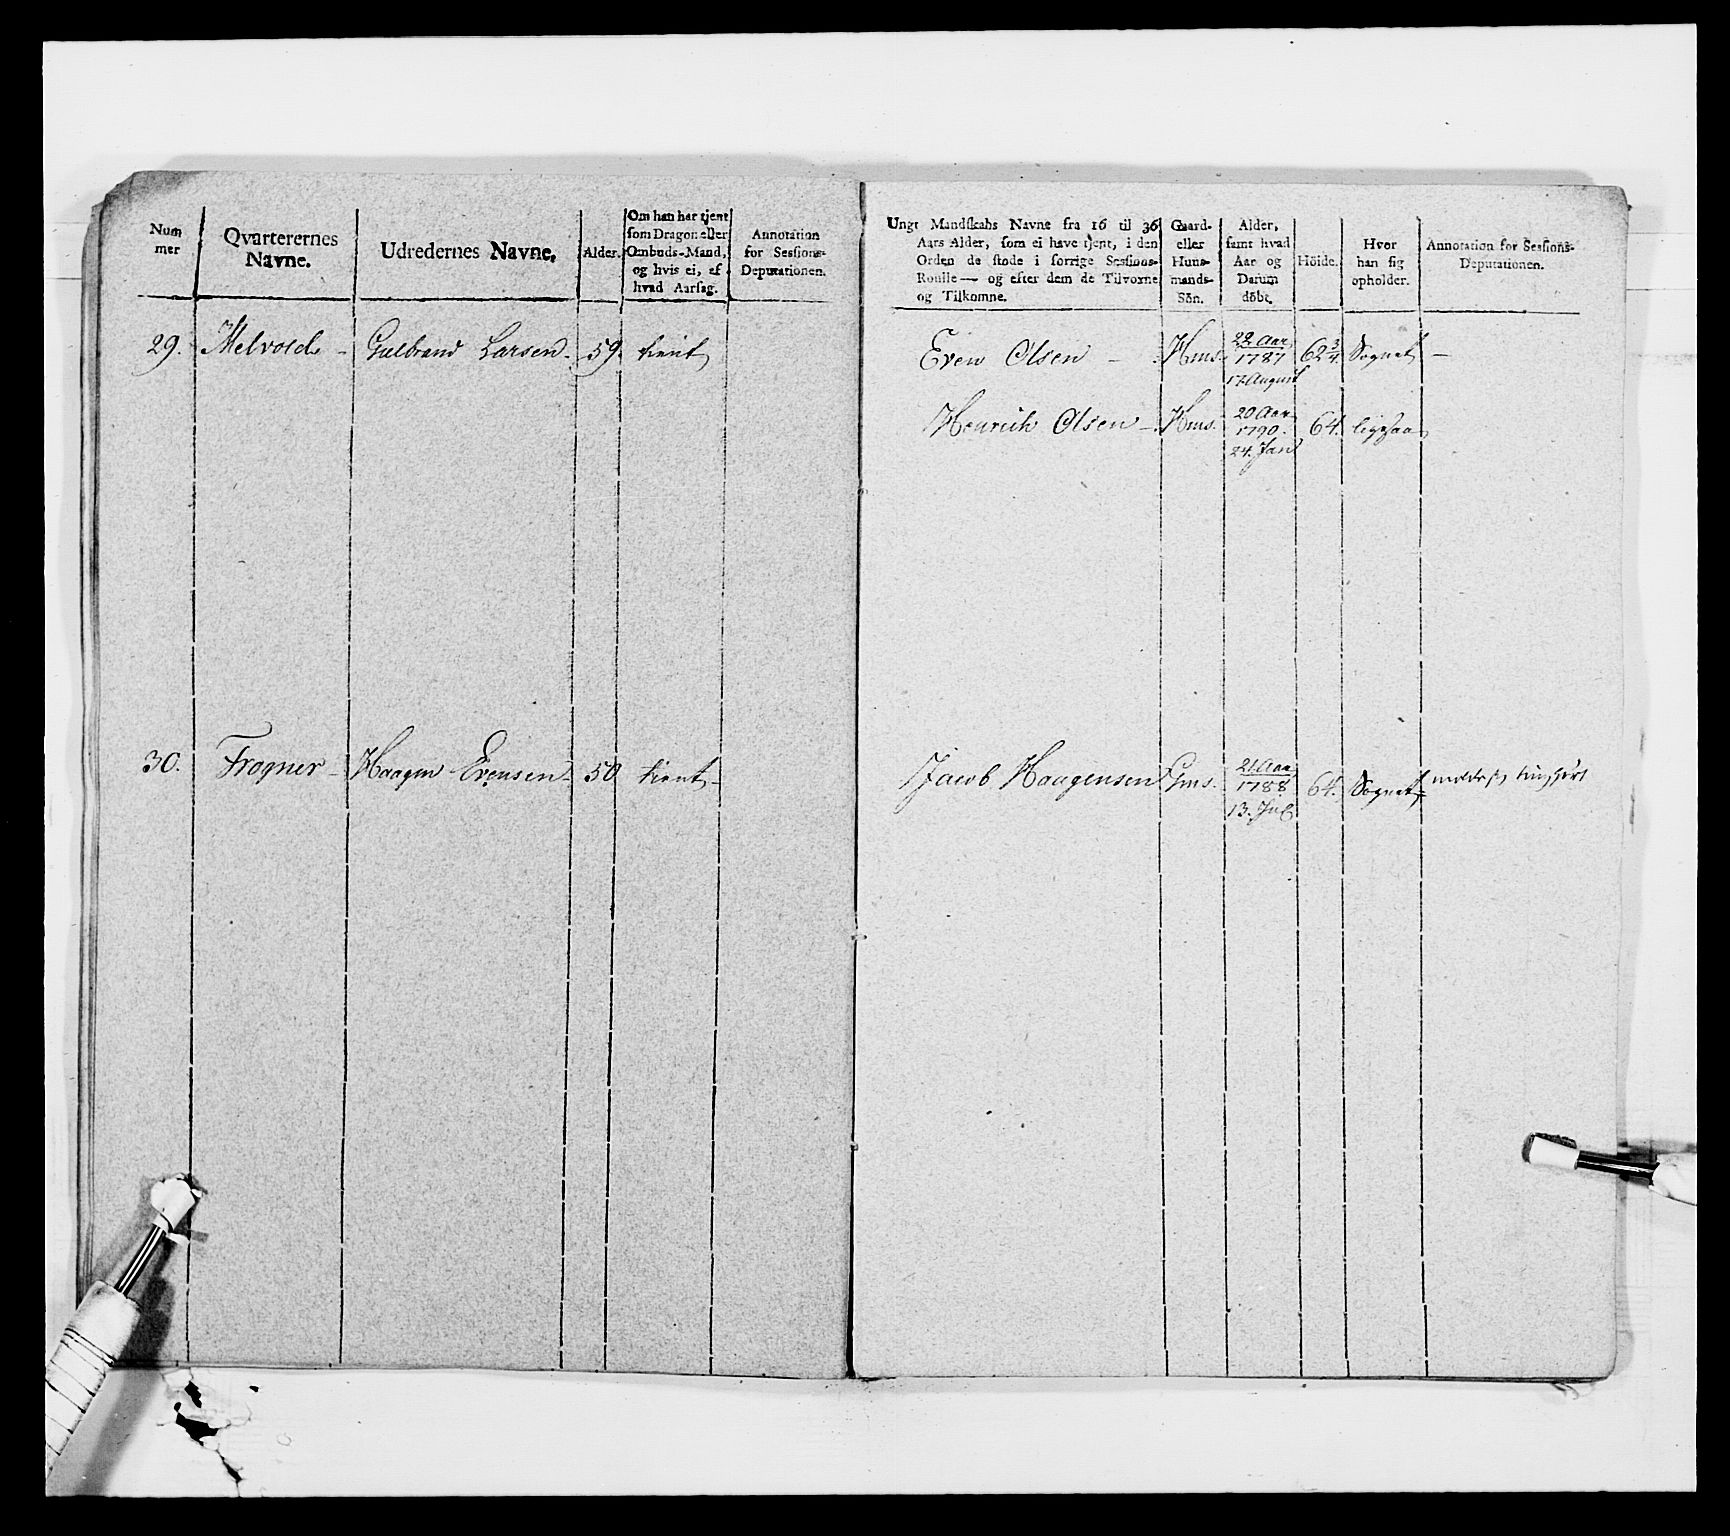 Num
mer
Qvarterernes
Navne.
Udredernes Navne.
Alder.
Om han har tjent
som Dragon eller
Ombuds-Mand,
og hvis ei, af
hvad Aarsag.
Annotation
for Sessions-
Deputationen.
29. Melvold - Gulbrand Larsen - 59. tient
30. Frogner - Haagen Evensen - 50 tient -
Ungt Mandskabs Navne fra 16 til 36
Aars Alder, som ei have tjent, i den
Orden de stode i forrige Sessions-
Roulle — og efter dem de Tilvoxne
og Tilkomne.
Gaard-
eller
Huus-
mands-
Sön.
Alder,
samt hvad
Aar og
Datum
döbt.
Höide.
Hvor
han sig
opholder.
Annotation for Sessions-
Deputationen.
Even Olsen - Hms. 22 Aar 62 3/4 Sognet -
1787
17 August
Henrich Olsen - Hms. 20 Aar 64. ligesaa
1790.
24. Jan
Jacob Haagensen Gms. 21 Aar 64. Sognet
1788
13. Jul